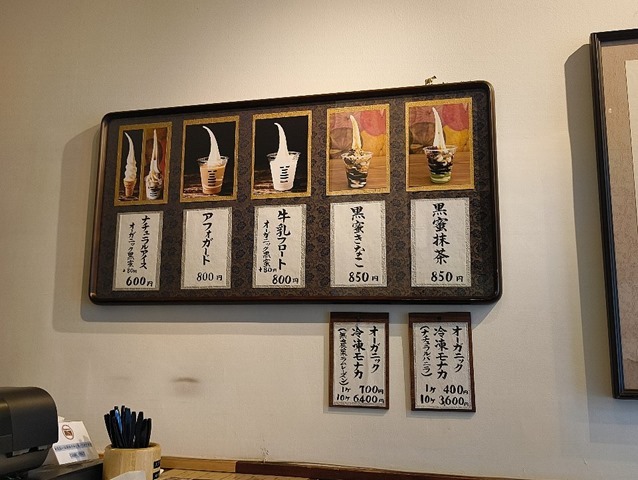 黒蜜抹茶
850円
黒蜜きなこ
850円
牛乳フロート
オーガニック黒蜜
+80円
800円
アフォガード
800円
ナチュラルアイス
オーガニック黒蜜
+80円
600円
オーガニック
冷凍モナカ
(ナチュラルバニラ)
1ヶ 400円
10ヶ 3600円
オーガニック
冷凍モナカ
1ヶ 700円
10ヶ 6400円